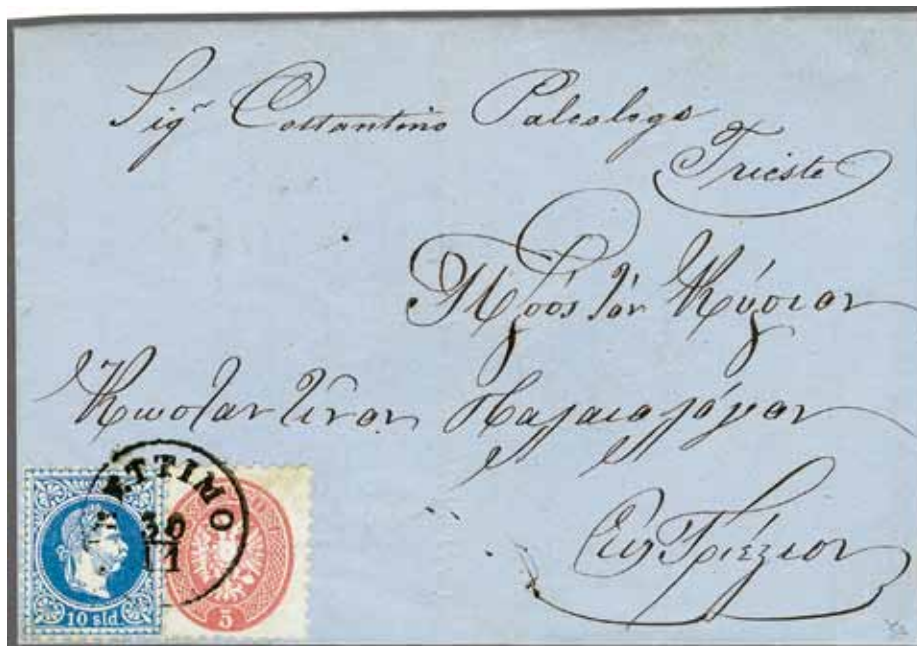 Sigr Costantino Paleologo
Trieste
Πρός τόν Κύριον
Κωνσταντίνον Παλαιολόγον
Εις Τριέστιον
ETTIMO
30
11
10 sld.
5